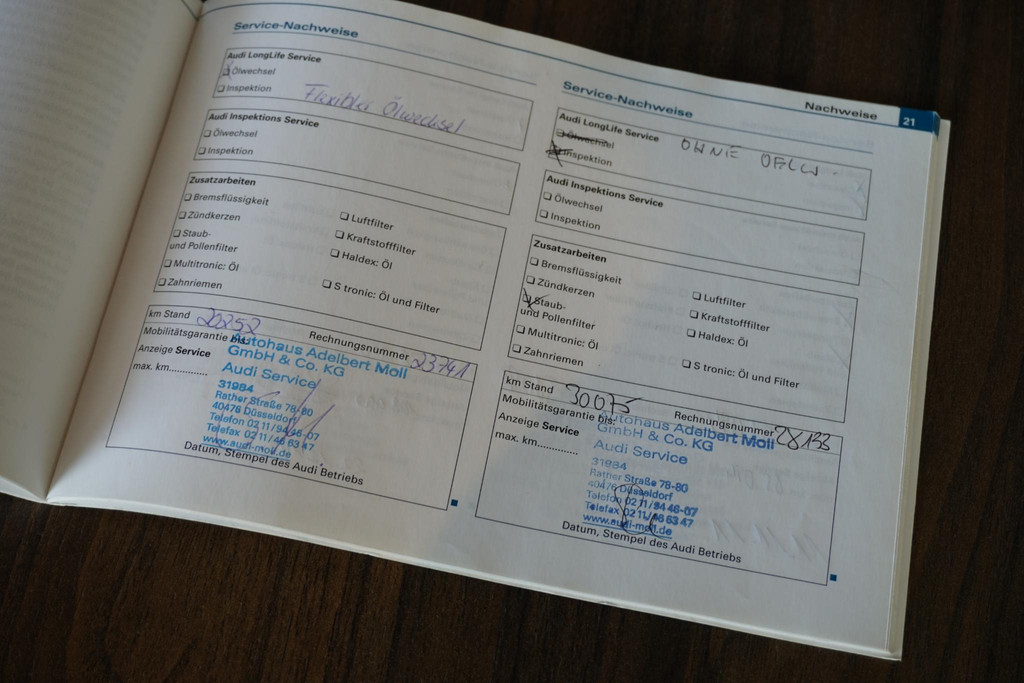 Service-Nachweise
Audi LongLife Service
Ölwechsel
Inspektion
Flexibler Ölwechsel
Audi Inspektions Service
Ölwechsel
Inspektion
Zusatzarbeiten
Bremsflüssigkeit
Zündkerzen
Staub-
und Pollenfilter
Multitronic: Öl
Zahnriemen
Luftfilter
Kraftstofffilter
Haldex: Öl
S tronic: Öl und Filter
km Stand 20252
Rechnungsnummer 23741
Mobilitätsgarantie bis:
Anzeige Service
max. km..............
Autohaus Adelbert Moll
GmbH & Co. KG
Audi Service
31984
Rather Straße 78-80
40476 Düsseldorf
Telefon 02 11/94 46-07
Telefax 02 11/46 63 47
www.audi-moll.de
Datum, Stempel des Audi Betriebs
Nachweise 21
Service-Nachweise
Audi LongLife Service
Ölwechsel
Inspektion
OHNE OELW.
Audi Inspektions Service
Ölwechsel
Inspektion
Zusatzarbeiten
Bremsflüssigkeit
Zündkerzen
Staub-
und Pollenfilter
Multitronic: Öl
Zahnriemen
Luftfilter
Kraftstofffilter
Haldex: Öl
S tronic: Öl und Filter
km Stand 30075
Rechnungsnummer 28133
Mobilitätsgarantie bis:
Anzeige Service
max. km..............
Autohaus Adelbert Moll
GmbH & Co. KG
Audi Service
31984
Rather Straße 78-80
40476 Düsseldorf
Telefon 02 11/94 46-07
Telefax 02 11/46 63 47
www.audi-moll.de
Datum, Stempel des Audi Betriebs